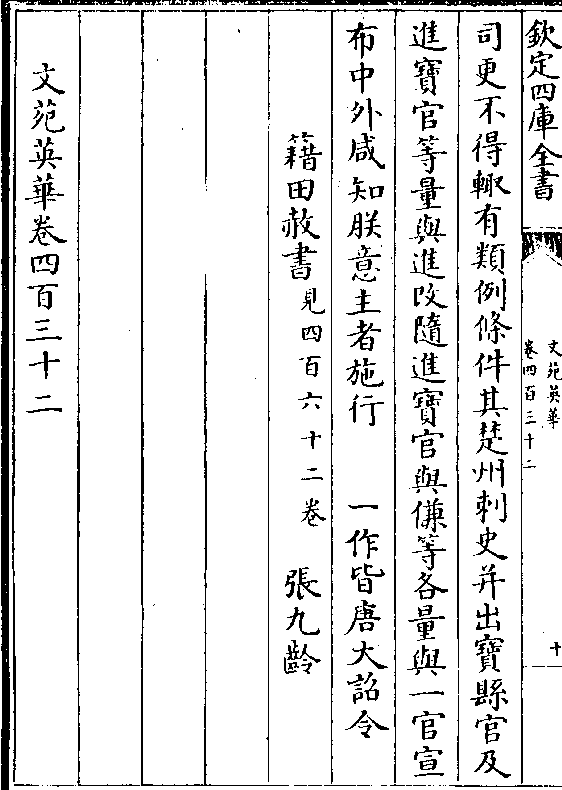 欽定四庫全書
文苑英華
卷四百三十二
十
司更不得輙有類例條件其楚州刺史并出寶縣官及
進寶官等量與進改隨進寶官與傔等各量與一官宣
布中外咸知朕意主者施行 一作皆唐大詔令
籍田赦書見四百六十二卷 張九齡
文苑英華卷四百三十二